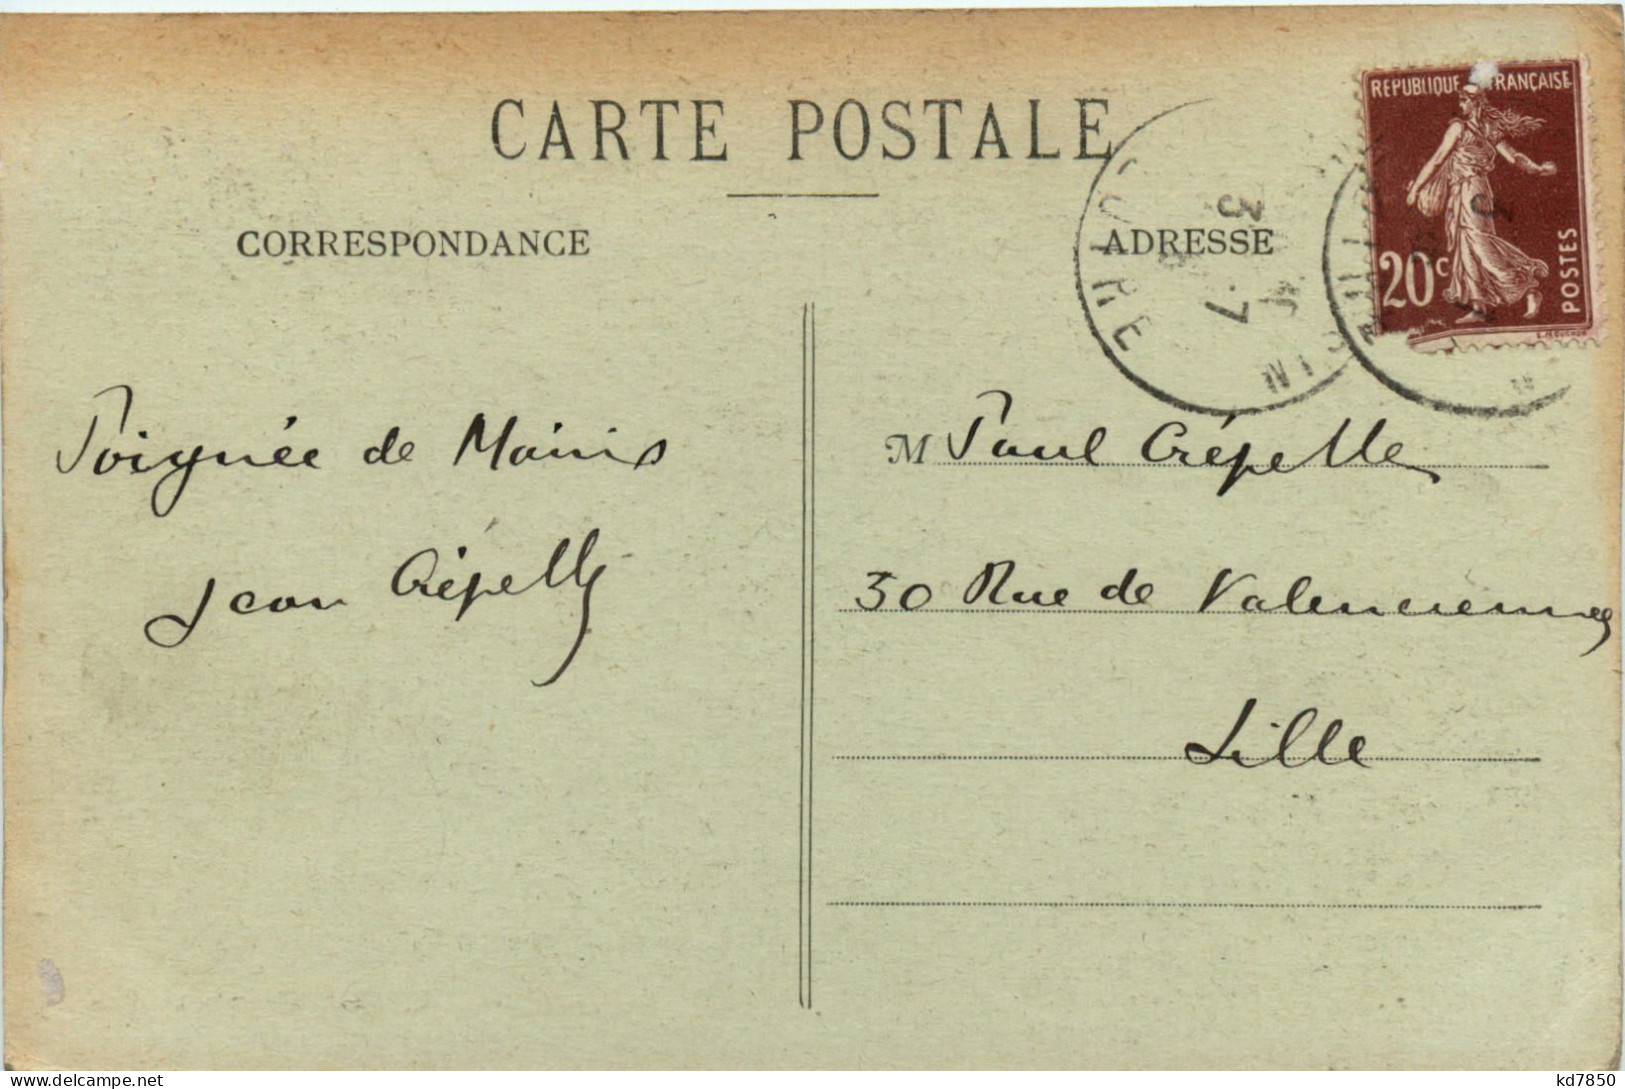 CARTE POSTALE
CORRESPONDANCE
ADRESSE
REPUBLIQUE FRANÇAISE
20c
POSTES
Poignée de Mains
Jean Crépelle
M Paul Crépelle
30 Rue de Valenciennes
Lille
kd7850